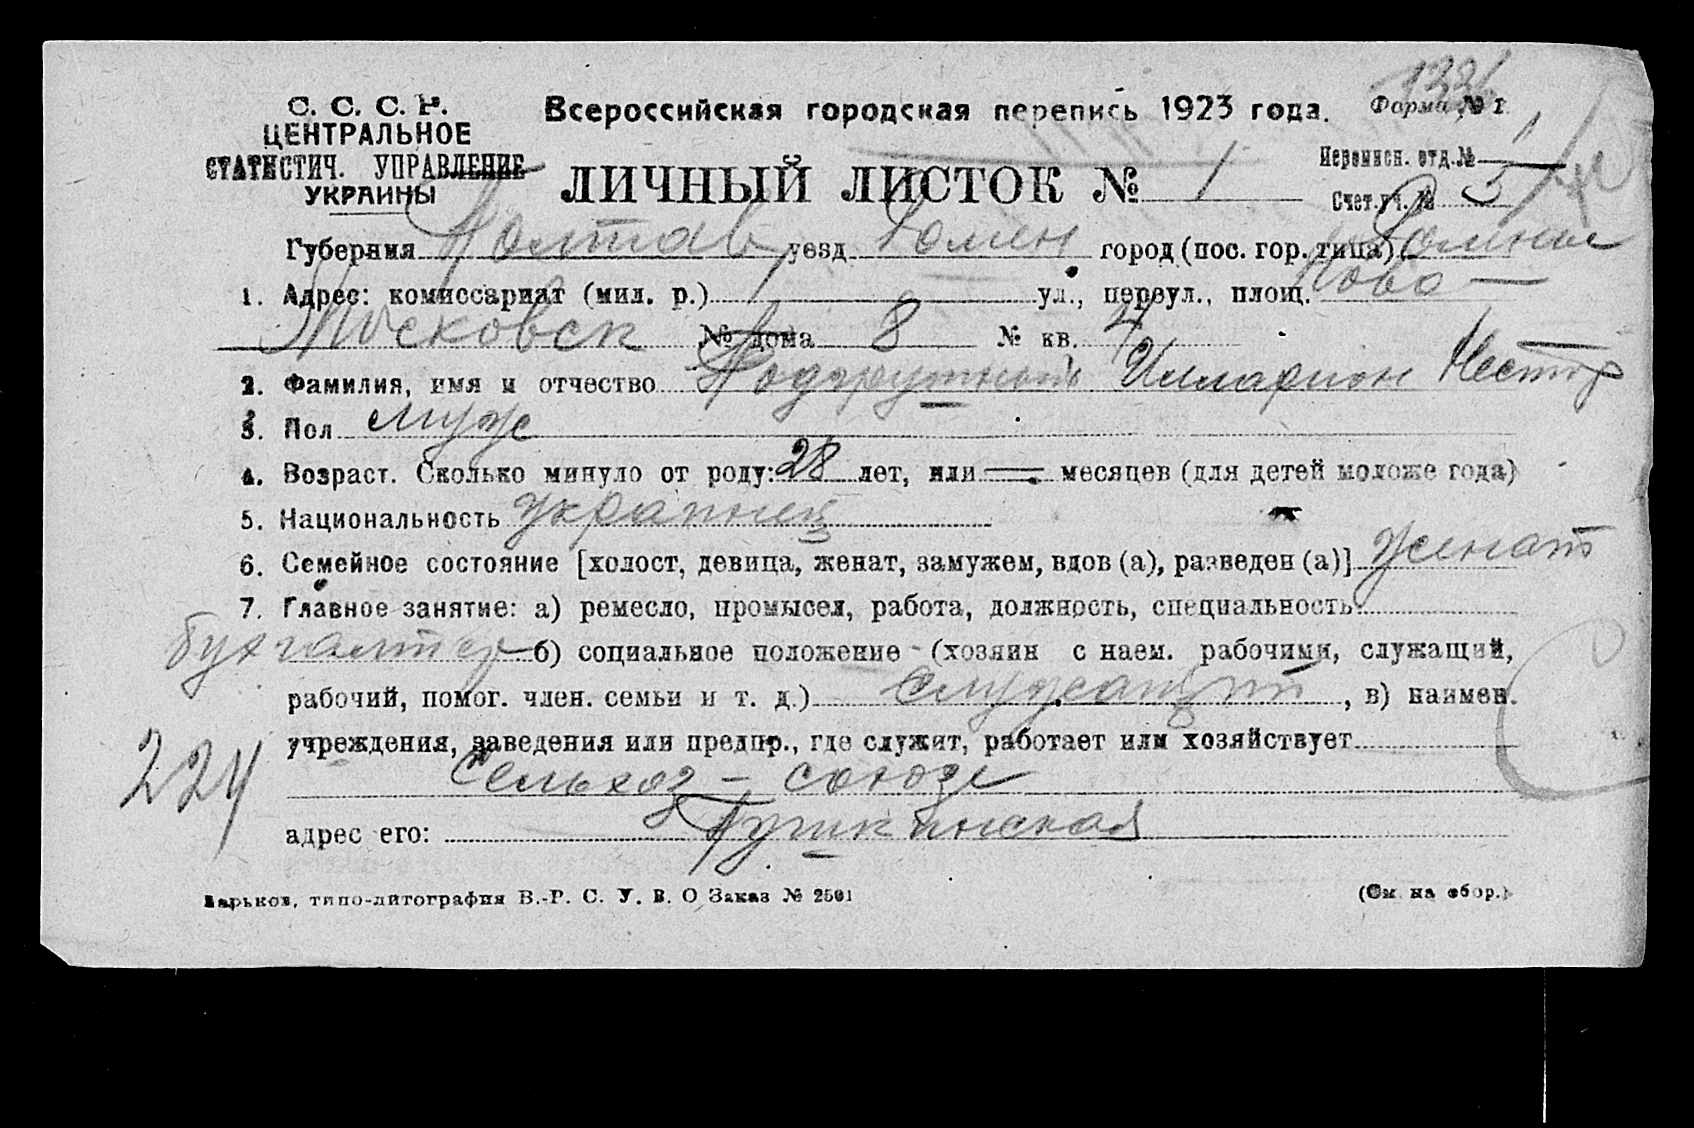 1331
С. С. С. Р. Всероссийская городская перепись 1923 года. Форма № 1
ЦЕНТРАЛЬНОЕ
СТАТИСТИЧ. УПРАВЛЕНИЕ
УКРАИНЫ
ЛИЧНЫЙ ЛИСТОК № 1
Переписн. отд. № 1
Счет. уч. № 5
Губерния Полтав уезд Ромен город (пос. гор. типа) Ромны
1. Адрес: комиссариат (мил. р.) 1 ул., переул., площ. Ново-
Московск № дома 8 № кв. 4
2. Фамилия, имя и отчество Илларион Нестор
3. Пол муж
4. Возраст. Сколько минуло от роду: 28 лет, или — месяцев (для детей моложе года)
5. Национальность украинец
6. Семейное состояние [холост, девица, женат, замужем, вдов (а), разведен (а)] женат
7. Главное занятие: а) ремесло, промысел, работа, должность, специальность:
бухгалтер б) социальное положение (хозяин с наем. рабочими, служащий,
рабочий, помог. член. семьи и т. д.) служащий, в) наимен.
учреждения, заведения или предпр., где служит, работает или хозяйствует
Сельхоз-союзе
224
адрес его: Пушкинская
Харьков, типо-литография В.-Р. С. У. В. О Заказ № 2501 (См. на обор.)